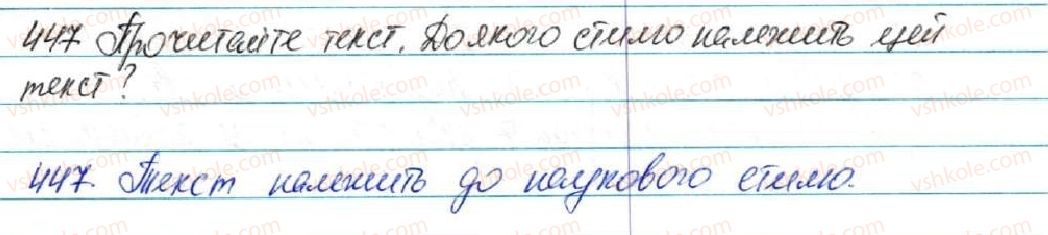 447 Прочитайте текст. До якого стилю належить цей
текст?
447. Текст належить до наукового стилю.